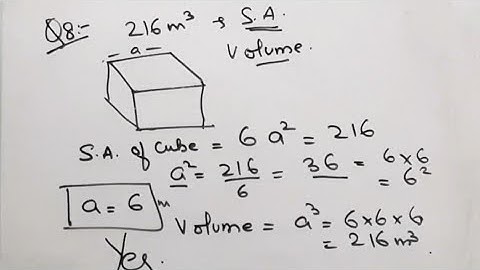 Q8:- 216 m³ → S.A.
Volume.
a
S.A. of cube = 6 a² = 216
a² = 216/6 = 36 = 6×6
= 6²
a = 6 m
Volume = a³ = 6×6×6
= 216 m³
Yes.